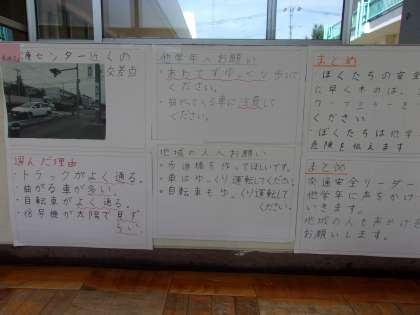 センター近くの
交差点
選んだ理由
・トラックがよく通る。
・曲がる車が多い。
・自転車がよく通る。
・信号機が太陽で見ず
らい。
他学年へお願い
・あわてずゆっくり歩いて
ください。
・曲がってくる車に注意して
ください。
地域の人へお願い
・歩道橋を作ってほしいです。
・車はゆっくり運転してください。
・自転車もゆっくり運転して
ください。
まとめ
ぼくたちの安全
に早く木のは、
ください
・ぼくたちは他
危険を伝えます
まとめ
交通安全リーダー
他学年に声をかけ
いきます。
地域の人も声かけを
お願いします。